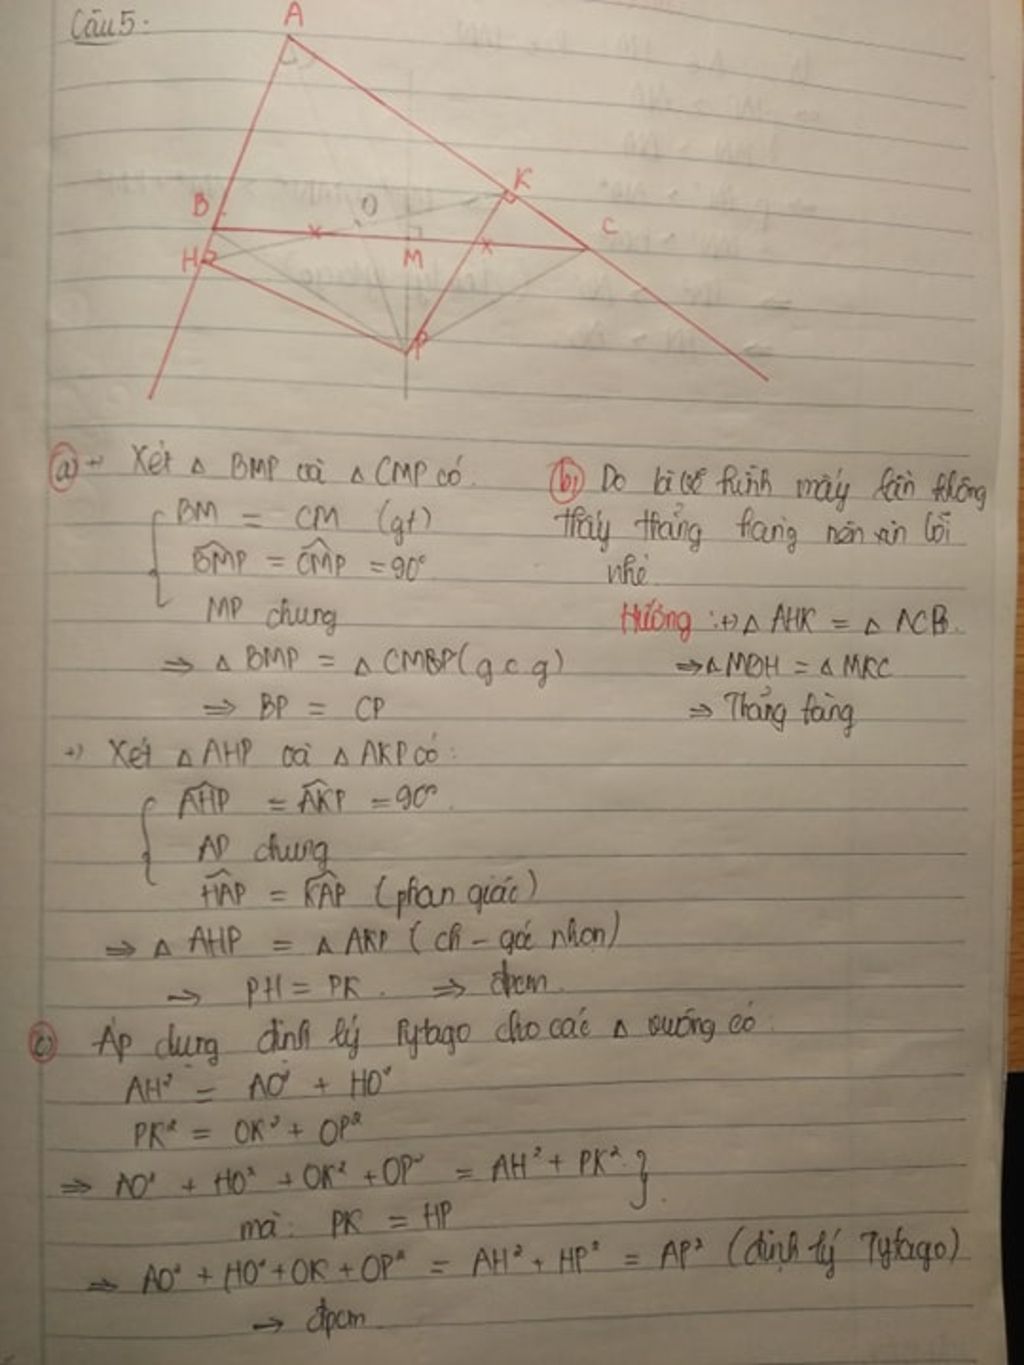 Câu 5:
A
B
K
O
C
H
M
P
a) +) Xét △ BMP và △ CMP có.
BM = CM (gt)
BMP = CMP = 90°
MP chung
⇒ △ BMP = △ CMBP (g c g)
⇒ BP = CP
+) Xét △ AHP và △ AKP có:
AHP = AKP = 90°.
AP chung
HAP = KAP (phân giác)
⇒ △ AHP = △ AKP (ch - góc nhọn)
⇒ PH = PK. ⇒ đpcm.
b) Do bị vẽ hình mấy lần không
thấy thẳng hàng nên xin lỗi
nhé.
Hướng :+) △ AHK = △ ACB.
⇒ △ MOH = △ MKC
⇒ Thẳng hàng
c) Áp dụng định lý Pytago cho các △ vuông có:
AH² = AO² + HO²
PK² = OK² + OP²
⇒ AO² + HO² + OK² + OP² = AH² + PK² }
mà: PK = HP
⇒ AO² + HO² + OK + OP² = AH² + HP² = AP² (định lý Pytago)
→ đpcm